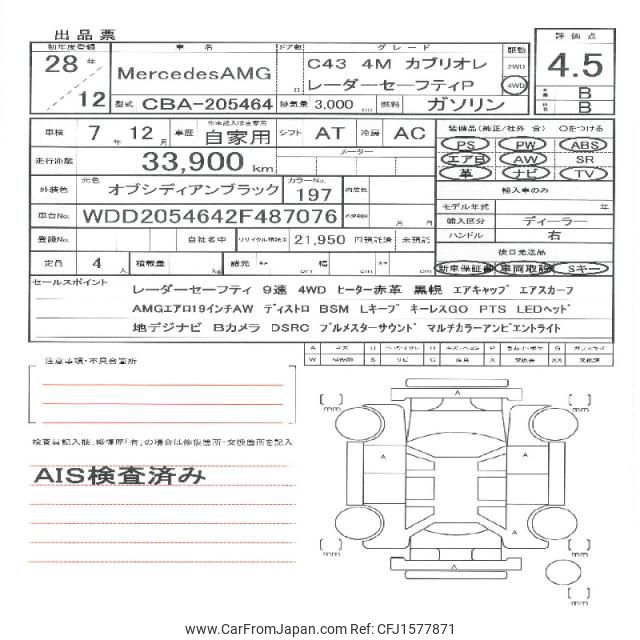 出品票
初年度登録 車名 ドア数 グレード 駆動 評価点
28年/12 MercedesAMG D C43 4M カブリオレ 2WD 4.5
レーダーセーフティP 4WD
型式 CBA-205464 排気量 3,000 cc 燃料 ガソリン B
B
車検 7年 12月 車歴 自家用 シフト AT 冷房 AC 装備品(純正/社外 含) ○をつける
走行距離 33,900 km メーター PS PW ABS
エアB AW SR
革 ナビ TV
外装色 元色 オブシディアンブラック カラーNo. 197 内装色 輸入車のみ
モデル年式 年
車台No. WDD2054642F487076 月 月 輸入区分 ディーラー
ハンドル 右
登録No. 自社名中 リサイクル預託金 21,950 円預託済 未預託 後日発送品
定員 4人 積載量 kg 諸元 cm 幅 cm cm 新車保証書 車両取説 Sキー
セールスポイント
レーダーセーフティ 9速 4WD ヒーター赤革 黒幌 エアキャップ エアスカーフ
AMGエアロ19インチAW ディストロ BSM Lキープ キーレスGO PTS LEDヘッド
地デジナビ Bカメラ DSRC ブルメスターサウンド マルチカラーアンビエントライト
A U H P G
W S C X XX
注意事項・不具合箇所
検査員記入欄、修復歴「有」の場合は修復箇所・交換箇所を記入
AIS検査済み
mm mm
A
A A
A
mm mm
A
mm
© CarFromJapan Ref: CFJ1577871